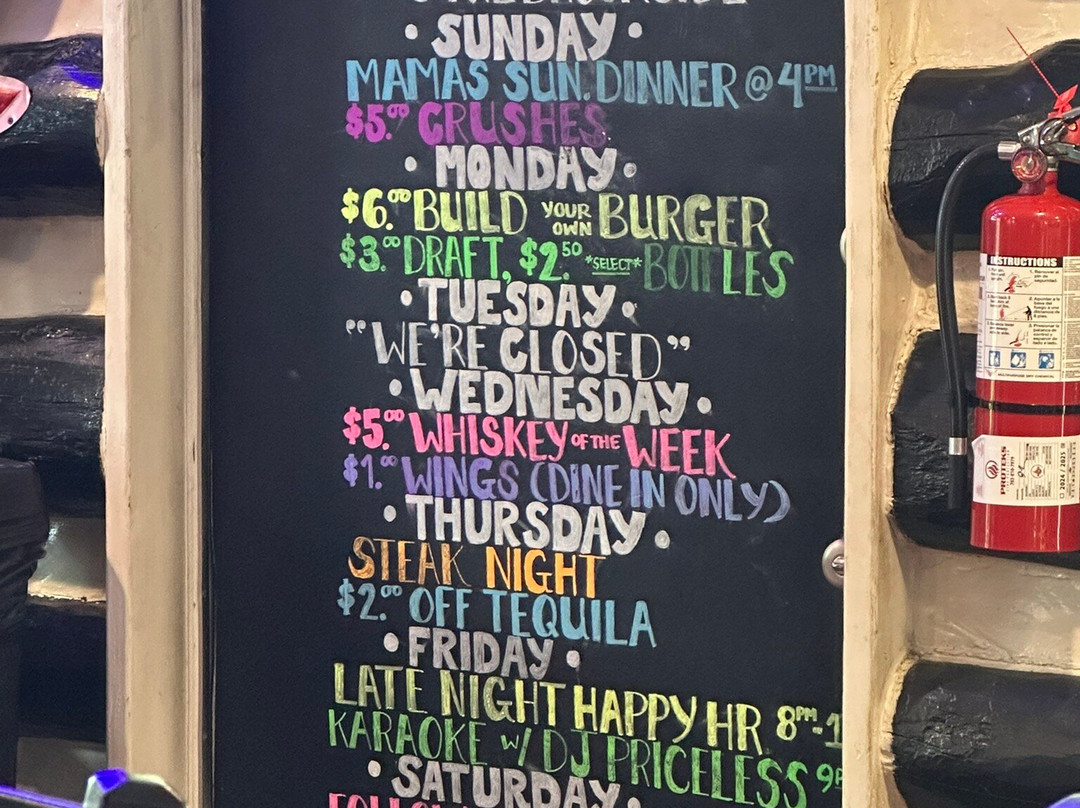 • SUNDAY •
MAMAS SUN. DINNER @ 4PM
$5.00 CRUSHES
• MONDAY •
$6.00 BUILD YOUR OWN BURGER
$3.00 DRAFT, $2.50 *SELECT* BOTTLES
• TUESDAY •
"WE'RE CLOSED"
• WEDNESDAY •
$5.00 WHISKEY OF THE WEEK
$1.00 WINGS (DINE IN ONLY)
• THURSDAY •
STEAK NIGHT
$2.00 OFF TEQUILA
• FRIDAY •
LATE NIGHT HAPPY HR 8PM-1
KARAOKE w/ DJ PRICELESS 9P
• SATURDAY •
INSTRUCTIONS
PROTEKS
2024 / 2025